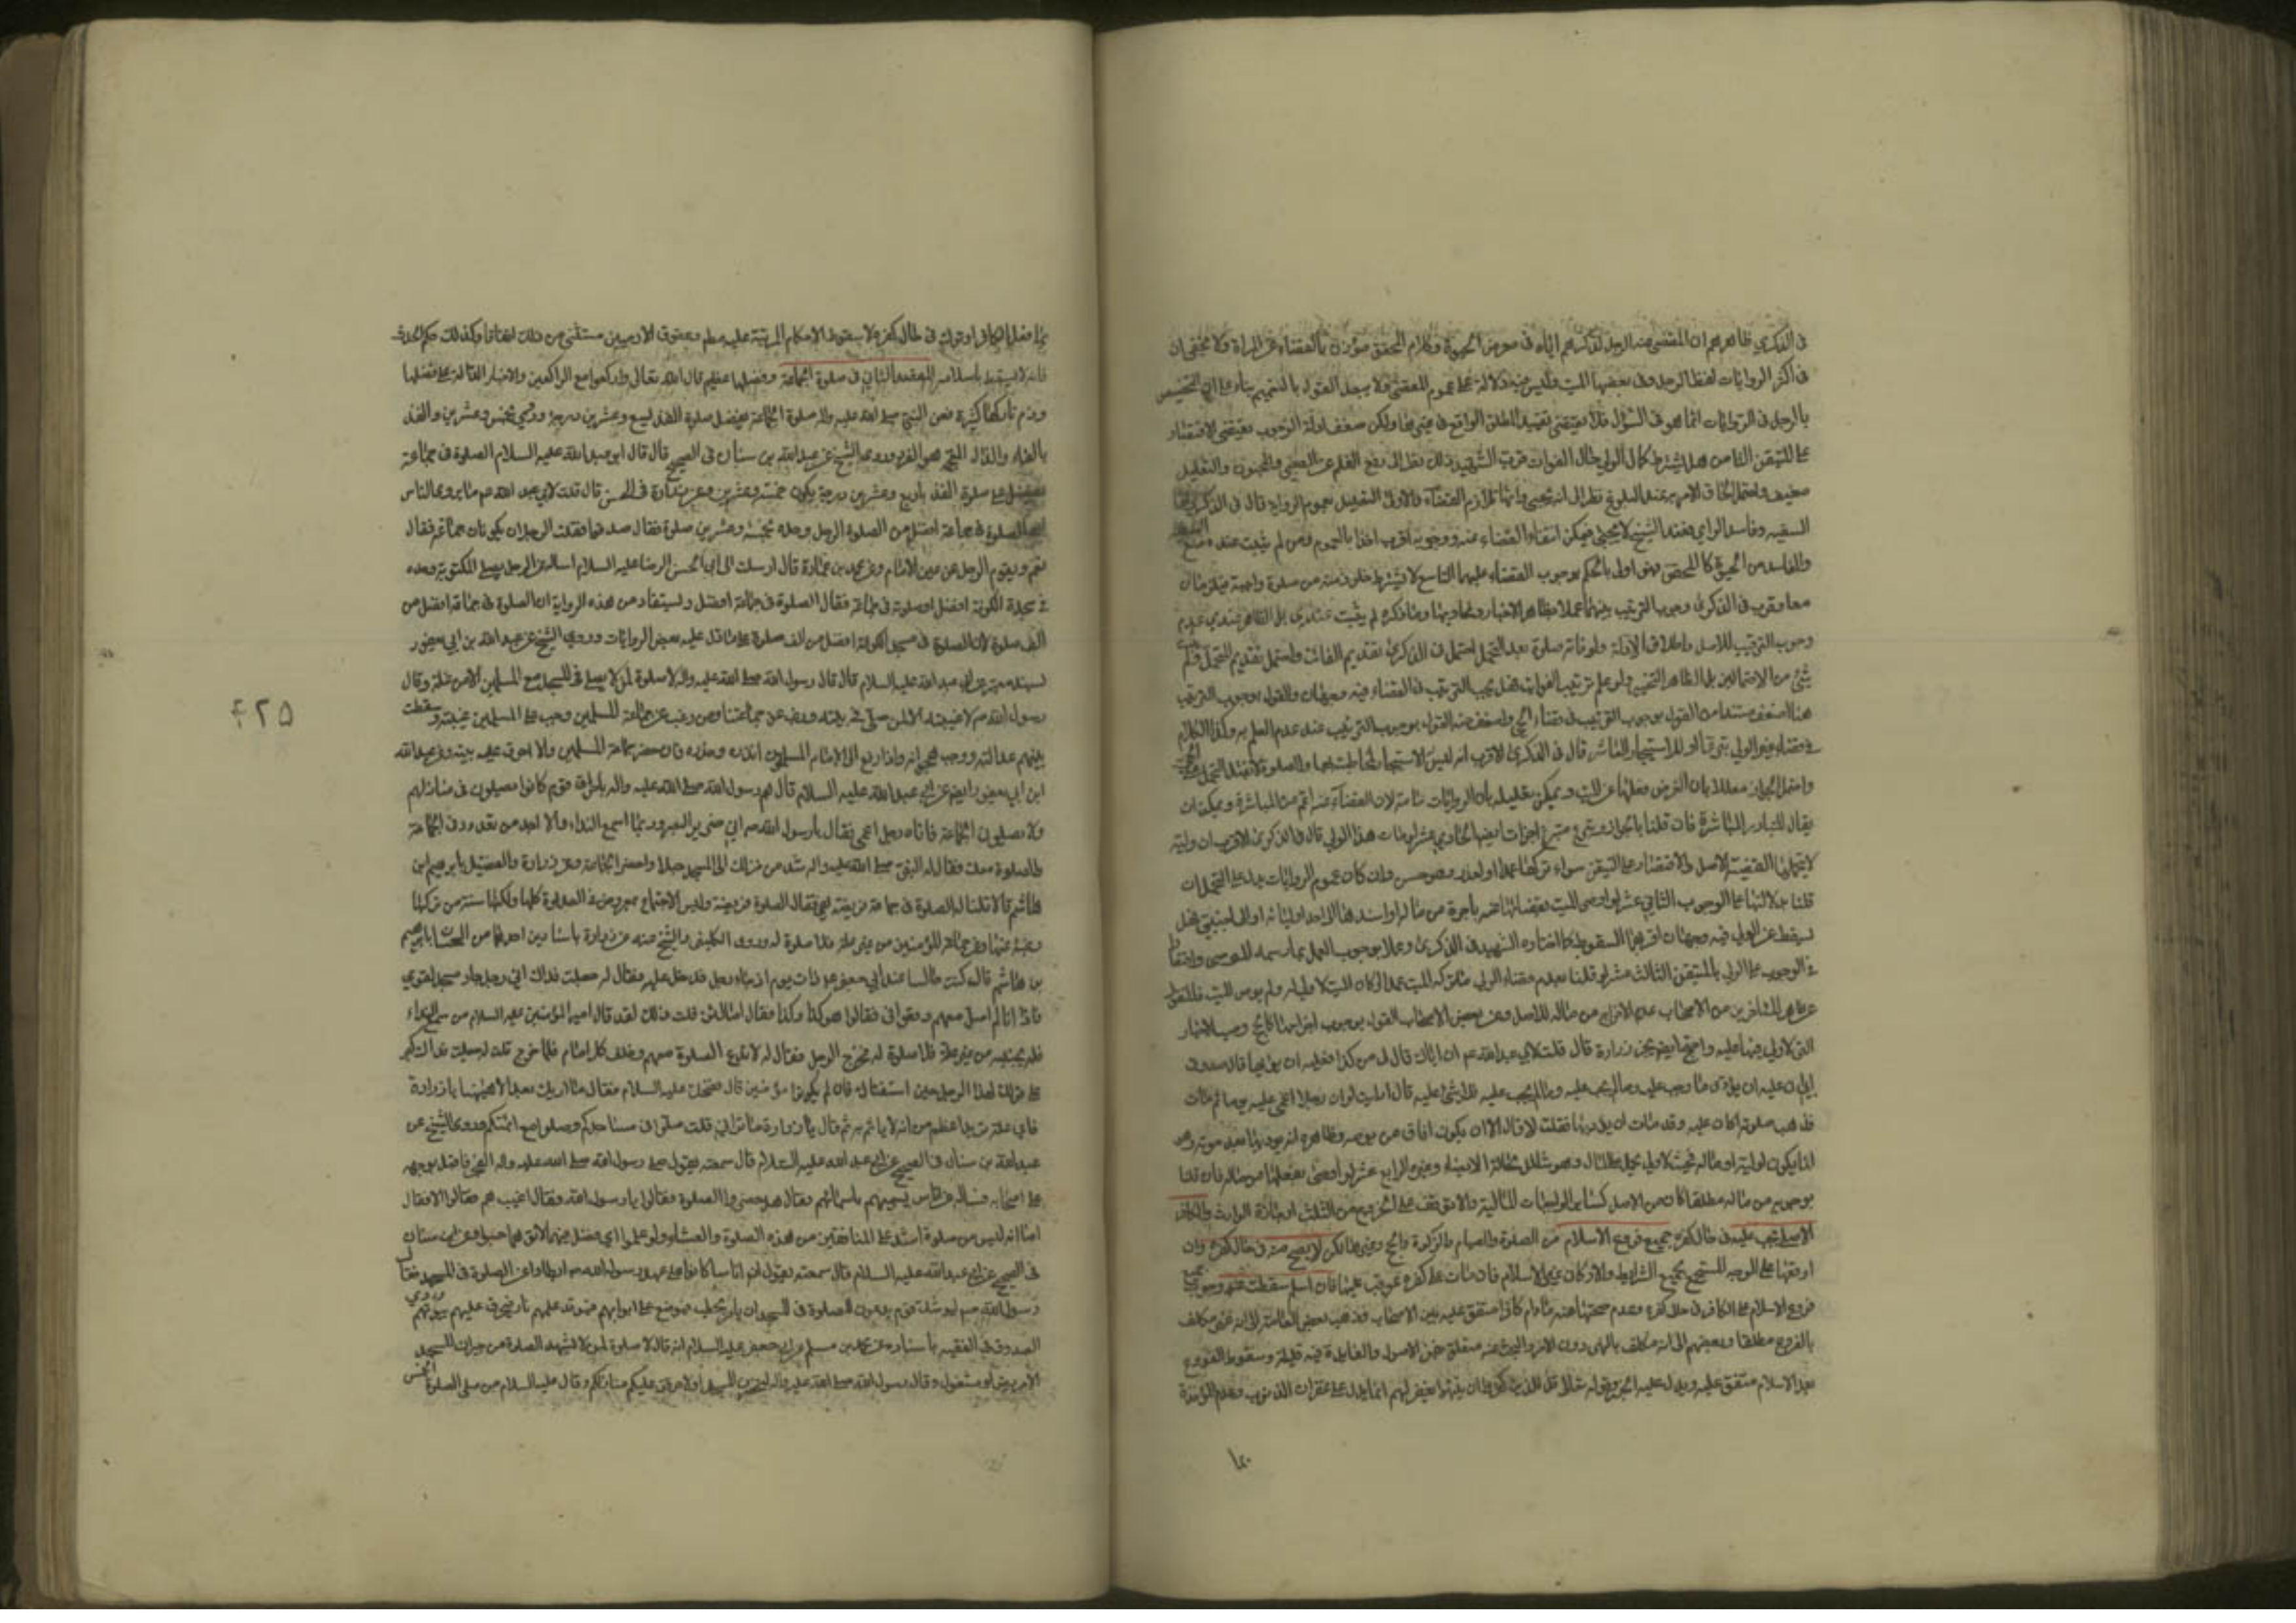 في الذكرى ظاهرهم ان المقضي عنه الرجل لذكرهم اياه في معرض الحبوة وكلام المحقق مؤذن بالقضاء عن المراة ولا يخفى ان
في اكثر الروايات لفظ الرجل وفي بعضها الميت وليس فيه دلالة على عموم المقضي ولا يبعد القول بالتعميم بناء على ان التخصيص
بالرجل في الروايات انما هو في السؤال فلا يقتضي تقييد المطلق الواقع في غيرها ولكن ضعف ادلة الوجوب يقتضي الاقتصار
على المتيقن الثامن هل يشترط كمال الولي حال الفوات قرب الشهيد ذلك نظرا الى رفع القلم عن الصبي والمجنون والتعليل
ضعيف واحتمل الحاق الامر به عند البلوغ نظرا الى انه يحبى وانها تلازم القضاء والاولى التعليل بعموم الرواية قال في الذكرى اما
السفيه وفاسد الراي فعند الشيخ لا يحبى فيمكن انتفاء القضاء عنه ووجوبه اقرب اخذا بالعموم ومن لم يثبت عنده منع السفيه
والفاسد من الحبوة كالمحقق فهو اولى بالحكم بوجوب القضاء عليهما التاسع لا يشترط خلو ذمته من صلوة واجبة فيلزمان
معا وقرب في الذكرى وجوب الترتيب بينهما عملا بظاهر الاخبار وفحاويها وما ذكره لم يثبت عندي بل الظاهر عندي عدم
وجوب الترتيب للاصل واطلاق الادلة ولو فاتته صلوة بعد التحمل احتمل في الذكرى تقديم الفائت واحتمل تقديم التحمل ولم يثبت
شئ من الاحتمالين بل الظاهر التخيير ولو علم ترتيب الفوات فهل يجب الترتيب في القضاء فيه وجهان والقول بوجوب الترتيب
هنا اضعف مستندا من القول بوجوب الترتيب في قضاء الحي واضعف منه القول بوجوب الترتيب عند عدم العلم به وكذا الكلام
في قضاء غير الولي بتبرع او الاستيجار العاشر قال في الذكرى الاقرب انه ليس له الاستيجار لمخاطبته بها والصلوة لا تقبل التحمل عن الحي
واحتمل الجواز معللا بان الغرض فعلها عن الميت ويمكن تعليله بان الروايات عامة لان القضاء عنه اعم من المباشرة ويمكن ان
يقال المتبادر المباشرة فان قلنا بالجواز وتبرع متبرع اجزأت ايضا الحادي عشر لو مات هذا الولي قال في الذكرى الاقرب ان وليه
لا يتحملها لقضية الاصل والاقتصار على المتيقن سواء تركها عمدا او لعذر وهو حسن وان كان عموم الروايات يدل على التحمل ان
قلنا بدلالتها على الوجوب الثاني عشر لو اوصى الميت بقضائها عنه باجرة من ماله او اسندها الى احد اوليائه او الى اجنبي فهل
يسقط عن الولي فيه وجهان اقربهما السقوط كما اختاره الشهيد في الذكرى وعملا بوجوب العمل بما رسمه الموصي واقتصارا
في الوجوب على الولي بالمتيقن الثالث عشر لو قلنا بعدم قضاء الولي ما تركه الميت عمدا او كان الميت لا ولي له ولم يوص الميت فالمنقول
عن ظاهر المتاخرين من الاصحاب عدم الاخراج من ماله للاصل وعن بعض الاصحاب القول بوجوب اخراجها كالحج وصب الاخبار
التي لا ولي فيها عليه واحتج ايضا بخبر زرارة قال قلت لابي عبد الله ع ان اباك قال لي من كذا فعليه ان يؤديها قال صدق
ابي ان عليه ان يؤدي ما وجب عليه وما لم يجب عليه فلا شئ عليه قال ارايت لو ان رجلا اغمي عليه يوما ثم مات
فذهب صلوته اكان عليه وقد مات ان يؤديها فقلت لا قال الا ان يكون افاق من يومه وظاهره انه يؤديها بعد موته وهو
انما يكون لوليه او ماله فحيث لا ولي يحمل على المال وهو شامل لحالة الايصاء وغيره الرابع عشر لو اوصى بفعلها من ماله فان قلنا
بوجوبه من ماله مطلقا كان من الاصل كسائر الواجبات المالية والا توقف على الخروج من الثلث او اجازة الوارث والكافر
الاصلي تجب عليه في حال كفره جميع فروع الاسلام من الصلوة والصيام والزكوة والحج وغيرها لكن لا يصح منه في حال كفره وان
اوقعها على الوجه المستجمع لجميع الشرايط والاركان غير الاسلام فان مات على كفره عوقب عليها فان اسلم سقطت عنه وجوب جميع
فروع الاسلام على الكافر في حال كفره وعدم صحتها منه مادام كافرا متفق عليه بين الاصحاب فذهب بعض العامة الى انه غير مكلف
بالفروع مطلقا وبعضهم الى انه مكلف بالنهي دون الامر والبحث عنه متعلق بفن الاصول والفايدة فيه قليلة وسقوط الفروع
بعد الاسلام متفق عليه ويدل عليه الخبر وقوله تعالى قل للذين كفروا ان ينتهوا يغفر لهم انما يدل على غفران الذنوب وعدم المؤاخذة
بما
بما فعل الكافر او ترك في حال كفره لا بسقوط الاحكام المرتبة عليه مطم وحقوق الادميين مستثنى من ذلك اتفاقا وكذلك حكم الحدث
فانه لا يسقط باسلامه المقصد الثاني في صلوة الجماعة وفضلها عظيم قال الله تعالى واركعوا مع الراكعين والاخبار الدالة على فضلها
وذم تاركها كثيرة فعن النبي صلى الله عليه واله صلوة الجماعة تفضل صلوة الفذ بسبع وعشرين درجة وروي بخمس وعشرين والفذ
بالفاء والذال المعجمة هو الفرد وروى الشيخ عن عبد الله بن سنان في الصحيح قال قال ابو عبد الله عليه السلام الصلوة في جماعة
تفضل على صلوة الفذ باربع وعشرين درجة يكون خمسة وعشرين وعن زرارة في الحسن قال قلت لابي عبد الله ع ما يروى الناس
ان الصلوة في جماعة افضل من الصلوة الرجل وحده بخمسة وعشرين صلوة فقال صدقوا فقلت الرجلان يكونان جماعة فقال
نعم ويقوم الرجل عن يمين الامام وعن محمد بن عمارة قال ارسلت الى ابي الحسن الرضا عليه السلام اساله عن الرجل يصلي المكتوبة وحده
في مسجد الكوفة افضل او صلوته في جماعة فقال الصلوة في جماعة افضل ويستفاد من هذه الرواية ان الصلوة في جماعة افضل من
الف صلوة لان الصلوة في مسجد الكوفة افضل من الف صلوة على ما دل عليه بعض الروايات وروى الشيخ عن عبد الله بن ابي يعفور
بسند معتبر عن ابي عبد الله عليه السلام قال قال رسول الله صلى الله عليه واله لا صلوة لمن لا يصلي في المسجد مع المسلمين الا من علة وقال
رسول الله ص لا غيبة الا لمن صلى في بيته ورغب عن جماعتنا ومن رغب عن جماعة المسلمين وجب على المسلمين غيبته وسقطت
بينهم عدالته ووجب هجرانه واذا رفع الى الامام المسلمين انذره وحذره فان حضر جماعة المسلمين والا احرق عليه بيته وعن عبد الله
ابن ابي يعفور ايضا عن ابي عبد الله عليه السلام قال هم رسول الله صلى الله عليه واله باحراق قوم كانوا يصلون في منازلهم
ولا يصلون الجماعة فاتاه رجل اعمى فقال يا رسول الله ص اني ضرير البصر وربما اسمع النداء ولا اجد من يقودني الى الجماعة
والصلوة معك فقال له النبي صلى الله عليه واله شد من منزلك الى المسجد حبلا واحضر الجماعة وعن زرارة والفضيل بابراهيم ابن
هاشم قالا قلنا له الصلوة في جماعة فريضة هي فقال الصلوة فريضة وليس الاجتماع بمفروض في الصلوة كلها ولكنها سنة من تركها
رغبة عنها وعن جماعة المؤمنين من غير علة فلا صلوة له وروى الكليني والشيخ عنه عن زرارة باسنادين احدهما من الحسان بابراهيم
بن هاشم قال كنت جالسا عند ابي جعفر ع ذات يوم اذ جاءه رجل فدخل عليه فقال له جعلت فداك اني رجل جار مسجد لقومي
فاذا انا لم اصل معهم وقعوا في فقالوا هو كذا وكذا فقال اما لئن قلت ذلك لقد قال امير المؤمنين عليه السلام من سمع النداء
فلم يجبه من غير علة فلا صلوة له فخرج الرجل فقال له لا تدع الصلوة معهم وخلف كل امام فلما خرج قلت له جعلت فداك كبر
علي قولك لهذا الرجل حين استفتاك فان لم يكونوا مؤمنين قال فضحك عليه السلام فقال ما اراك بعد الا هيهنا يا زرارة
فاي علة تريد اعظم من انه لا ياتم به ثم قال يا زرارة ما تراني قلت صلوا في مساجدكم وصلوا مع ائمتكم وروى الشيخ عن
عبد الله بن سنان في الصحيح عن ابي عبد الله عليه السلام قال سمعته يقول صلى رسول الله صلى الله عليه واله الفجر فاقبل بوجهه
على اصحابه فسال عن اناس يسميهم باسمائهم فقال هل حضروا الصلوة فقالوا لا يا رسول الله فقال اغيب هم فقالوا لا فقال
اما انه ليس من صلوة اشد على المنافقين من هذه الصلوة والعشاء ولو علموا اي فضل فيهما لاتوهما حبوا وعن ابن سنان
في الصحيح عن ابي عبد الله عليه السلام قال سمعته يقول ان اناسا كانوا على عهد رسول الله ص ابطاوا عن الصلوة في المسجد فقال
رسول الله ص ليوشك قوم يدعون الصلوة في المسجد ان يامر بحطب فيوضع على ابوابهم فتوقد عليهم نار فيحرق عليهم بيوتهم وروى
الصدوق في الفقيه باسناده عن محمد بن مسلم عن ابي جعفر عليه السلام انه قال لا صلوة لمن لا يشهد الصلوة من جيران المسجد
الا مريض او مشغول وقال رسول الله صلى الله عليه واله لتحضرن المسجد او لاحرقن عليكم منازلكم وقال عليه السلام من صلى الصلوة الخمس
۴۲۵